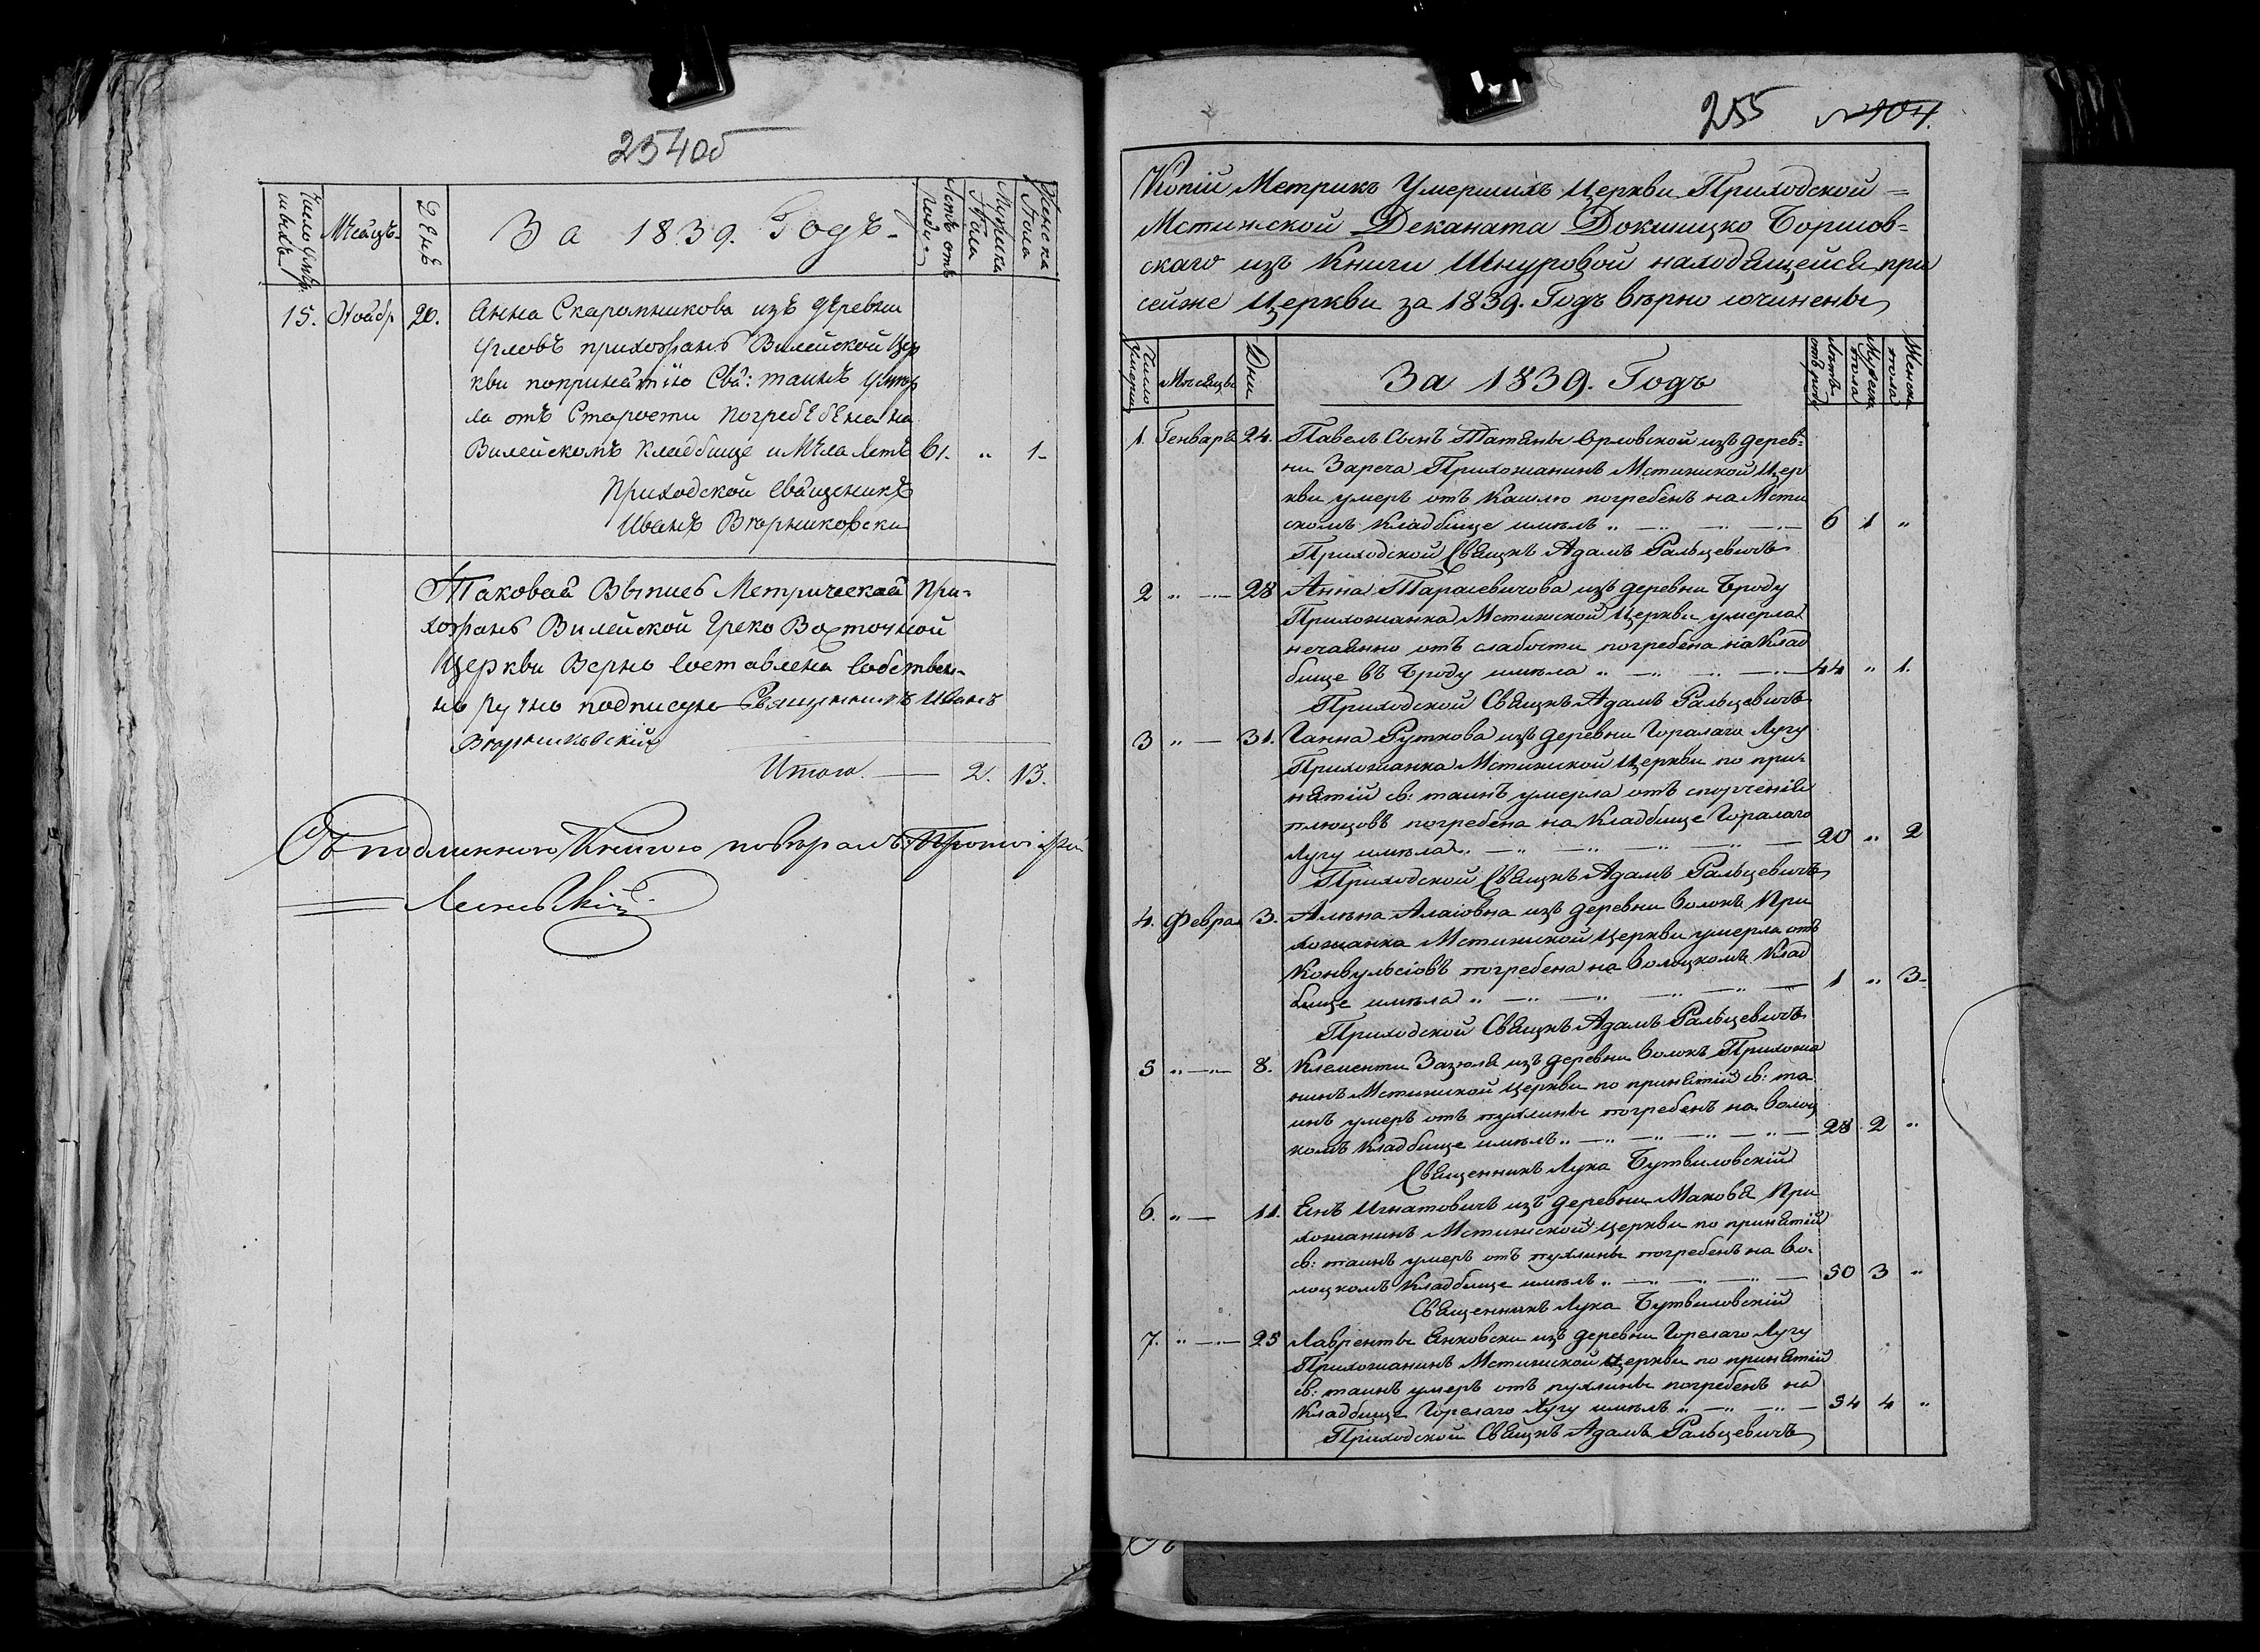 254об
Число Умер-
шихъ
Мѣсяцъ
День
За 1839. Годъ
Лѣтъ отъ
Роду
Мужеска
Пола
Женска
Пола
15. Ноябр 20. Анна Скаромникова изъ деревни
Угловъ прихожанъ Вилейской Цер
кви попринятїю Свя: таинъ умер
ла отъ Старости погребебена на
Вилейскомъ Кладбище имѣла Летъ 61. „ 1-
Приходской Священикъ
Иванъ
Таковая Выпись Метрическая При-
хожанъ Вилейской Греко Восточной
Церкви Верно Составлена Собствен-
но ручно подписую Священникъ Иванъ
Итого — 2. 13.
Съ подлинною Книгою поверялъ Протоіерей
255 №104.
Копій Метрикъ Умершихъ Церкви Приходской =
Мстижской Деканата Докшицко Борисов=
скаго изъ Книги Шнуровой находящейся при
сейже Церкви за 1839. Годъ вѣрно сочинены
Число
Умерш
Мѣсяцы
Дни
За 1839. Годъ
Лѣтъ
отъ роду
Мужеск
пола
Женска
пола
1. Генваря 24. Павелъ Сынъ Татяны Орловской изъ дерев=
ни Зареча Прихожанинъ Мстижской Цер
кви умеръ отъ Кашлю погребенъ на Мсти
скомъ Кладбище имѣлъ „ — „ — „ — 6 1 „
Приходской Свящнъ Адамъ Ральцевичъ
2 „ — „ — 28 Анна Тарасевичова изъ деревни Броду
Прихожанка Мстижской Церкви умерла
нечаянно отъ слабости погребена на Клад
бище въ Броду имѣла „ — „ — „ — 44 „ 1.
Приходской Свящнъ Адамъ Ральцевичъ
3 „ — 31. Ганна Руткова изъ деревни Горалаго Лугу
Прихожанка Мстижской Церкви по при-
нятій св: таинъ умерла отъ спорченія
плюцовъ погребена на Кладбище Горалаго
Лугу имѣла „ — „ — „ — „ — 20 „ 2
Приходской Свящнъ Адамъ Ральцевичъ
4. Феврал 3. Алѣна из деревни Волокъ При
хожанка Мстижской Церкви умерла отъ
Конвульсіовъ погребена на Волоцкомъ Клад
бище имѣла „ — „ — „ — „ — 1 „ 3-
Приходской Свящнъ Адамъ Ральцевичъ
5 „ — „ — 8. Клементи Зазюля изъ деревни Волокъ Прихожа
нинъ Мстижской Церкви по принятій св: та
инъ умеръ отъ пухлины погребенъ на Волоц
комъ Кладбище имѣлъ „ — „ — „ — „ — 28 2 „
Священникъ Лука Бутвиловскій
6. „ — 11. Янъ Игнатовичъ изъ деревни Маковя При
хожанинъ Мстижской Церкви по принятій
св: таинъ умеръ отъ пухлины погребенъ на Во-
лоцкомъ Кладбище имѣлъ „ — „ — „ — 50 3 „
Священникъ Лука Бутвиловскій
7. „ — „ — 25 Лавренты Янковски изъ деревни Горелаго Лугу
Прихожанинъ Мстижской Церкви по принятій
св: таинъ умеръ отъ пухлины погребенъ на
Кладбище Горелаго Лугу имѣлъ „ — „ — „ — 54 4 „
Приходской Свящнъ Адамъ Ральцевичъ